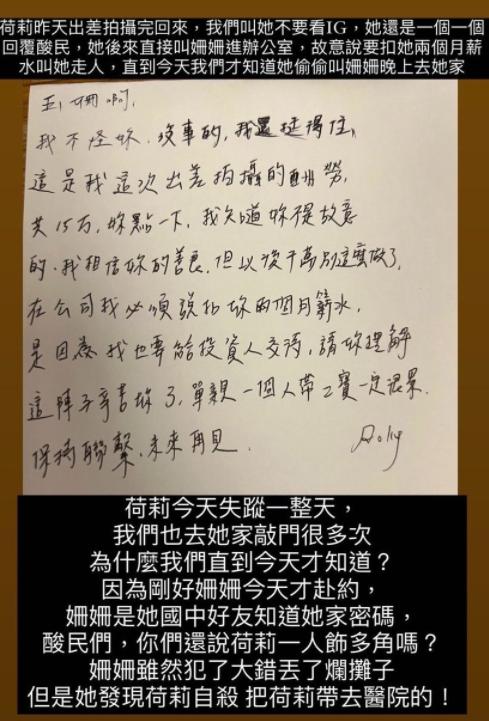 荷莉昨天出差拍攝完回來，我們叫她不要看IG，她還是一個一個
回覆酸民，她後來直接叫姍姍進辦公室，故意說要扣她兩個月薪
水叫她走人，直到今天我們才知道她偷偷叫姍姍晚上去她家
姍啊，
我不怪妳．沒事的，我還挺得住，
這是我這次出差拍攝的酬勞，
共15万，妳點一下，我知道妳不是故意
的．我相信妳的善良．但以後千萬別這麼做了，
在公司我必須說扣妳兩個月薪水，
是因為我也要給投資人交待，請妳理解
這陣子辛苦妳了，單親一個人帶二寶一定很累．
保持聯繫．未來再見．
荷莉今天失蹤一整天，
我們也去她家敲門很多次
為什麼我們直到今天才知道？
因為剛好姍姍今天才赴約，
姍姍是她國中好友知道她家密碼，
酸民們，你們還說荷莉一人飾多角嗎？
姍姍雖然犯了大錯丟了爛攤子
但是她發現荷莉自殺 把荷莉帶去醫院的！